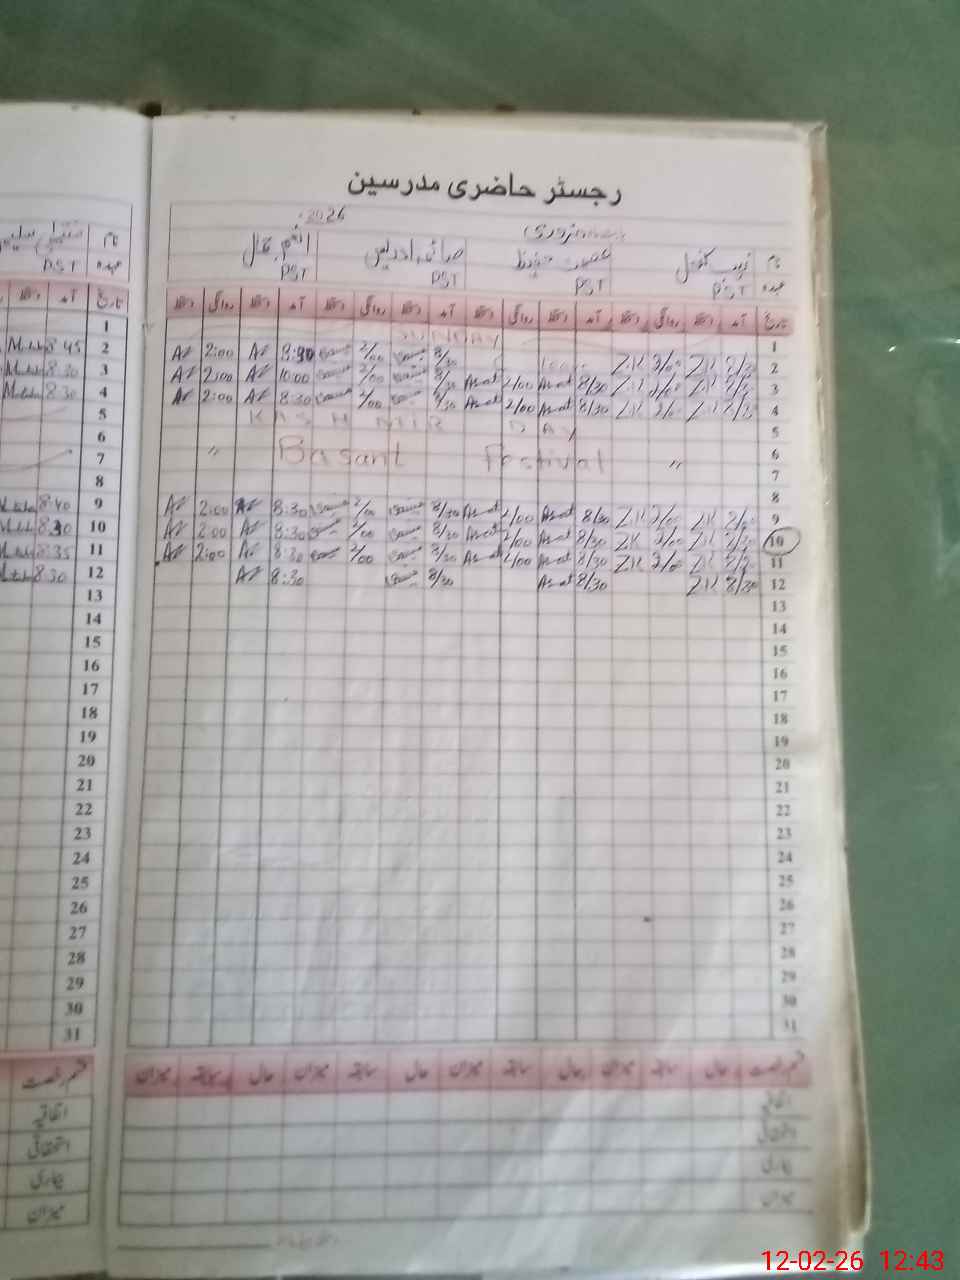 رجسٹر حاضری مدرسین
2026
بابت ماہ فروری
نام
عہدہ PST PST PST PST
تاریخ آمد دستخط روانگی دستخط آمد دستخط روانگی دستخط آمد دستخط روانگی دستخط آمد دستخط روانگی دستخط
1 SUNDAY
2 8/30 ZK 2/00 ZK 8/30 2/00 8:30 AF 2:00 AF
3 8/30 ZK 2/00 ZK 8/30 Asmat 2/00 Asmat 8/30 2/00 10:00 AF 2:00 AF
4 8/30 ZK 2/00 ZK 8/30 Asmat 2/00 Asmat 8/30 2/00 8:30 AF 2:00 AF
5 KASHMIR DAY
6 " Basant Festival "
7
8
9 8/30 ZK 2/00 ZK 8/30 Asmat 2/00 Asmat 8/30 2/00 8:30 AF 2:00 AF
10 8/30 ZK 2/00 ZK 8/30 Asmat 2/00 Asmat 8/30 2/00 8:30 AF 2:00 AF
11 8/30 ZK 2/00 ZK 8/30 Asmat 2/00 Asmat 8/30 2/00 8:30 AF 2:00 AF
12 8/30 ZK 8/30 Asmat 8/30 8:30 AF
13
14
15
16
17
18
19
20
21
22
23
24
25
26
27
28
29
30
31
قسم رخصت حال سابقہ میزان حال سابقہ میزان حال سابقہ میزان حال سابقہ میزان
اتفاقیہ
استحقاقی
بیماری
میزان
نام
عہدہ PST
تاریخ آمد دستخط
1
2 8:45
3 8:30
4 8:30
5
6
7
8
9 8:40
10 8:30
11 8:35
12 8:30
13
14
15
16
17
18
19
20
21
22
23
24
25
26
27
28
29
30
31
قسم رخصت
اتفاقیہ
استحقاقی
بیماری
میزان
12-02-26 12:43